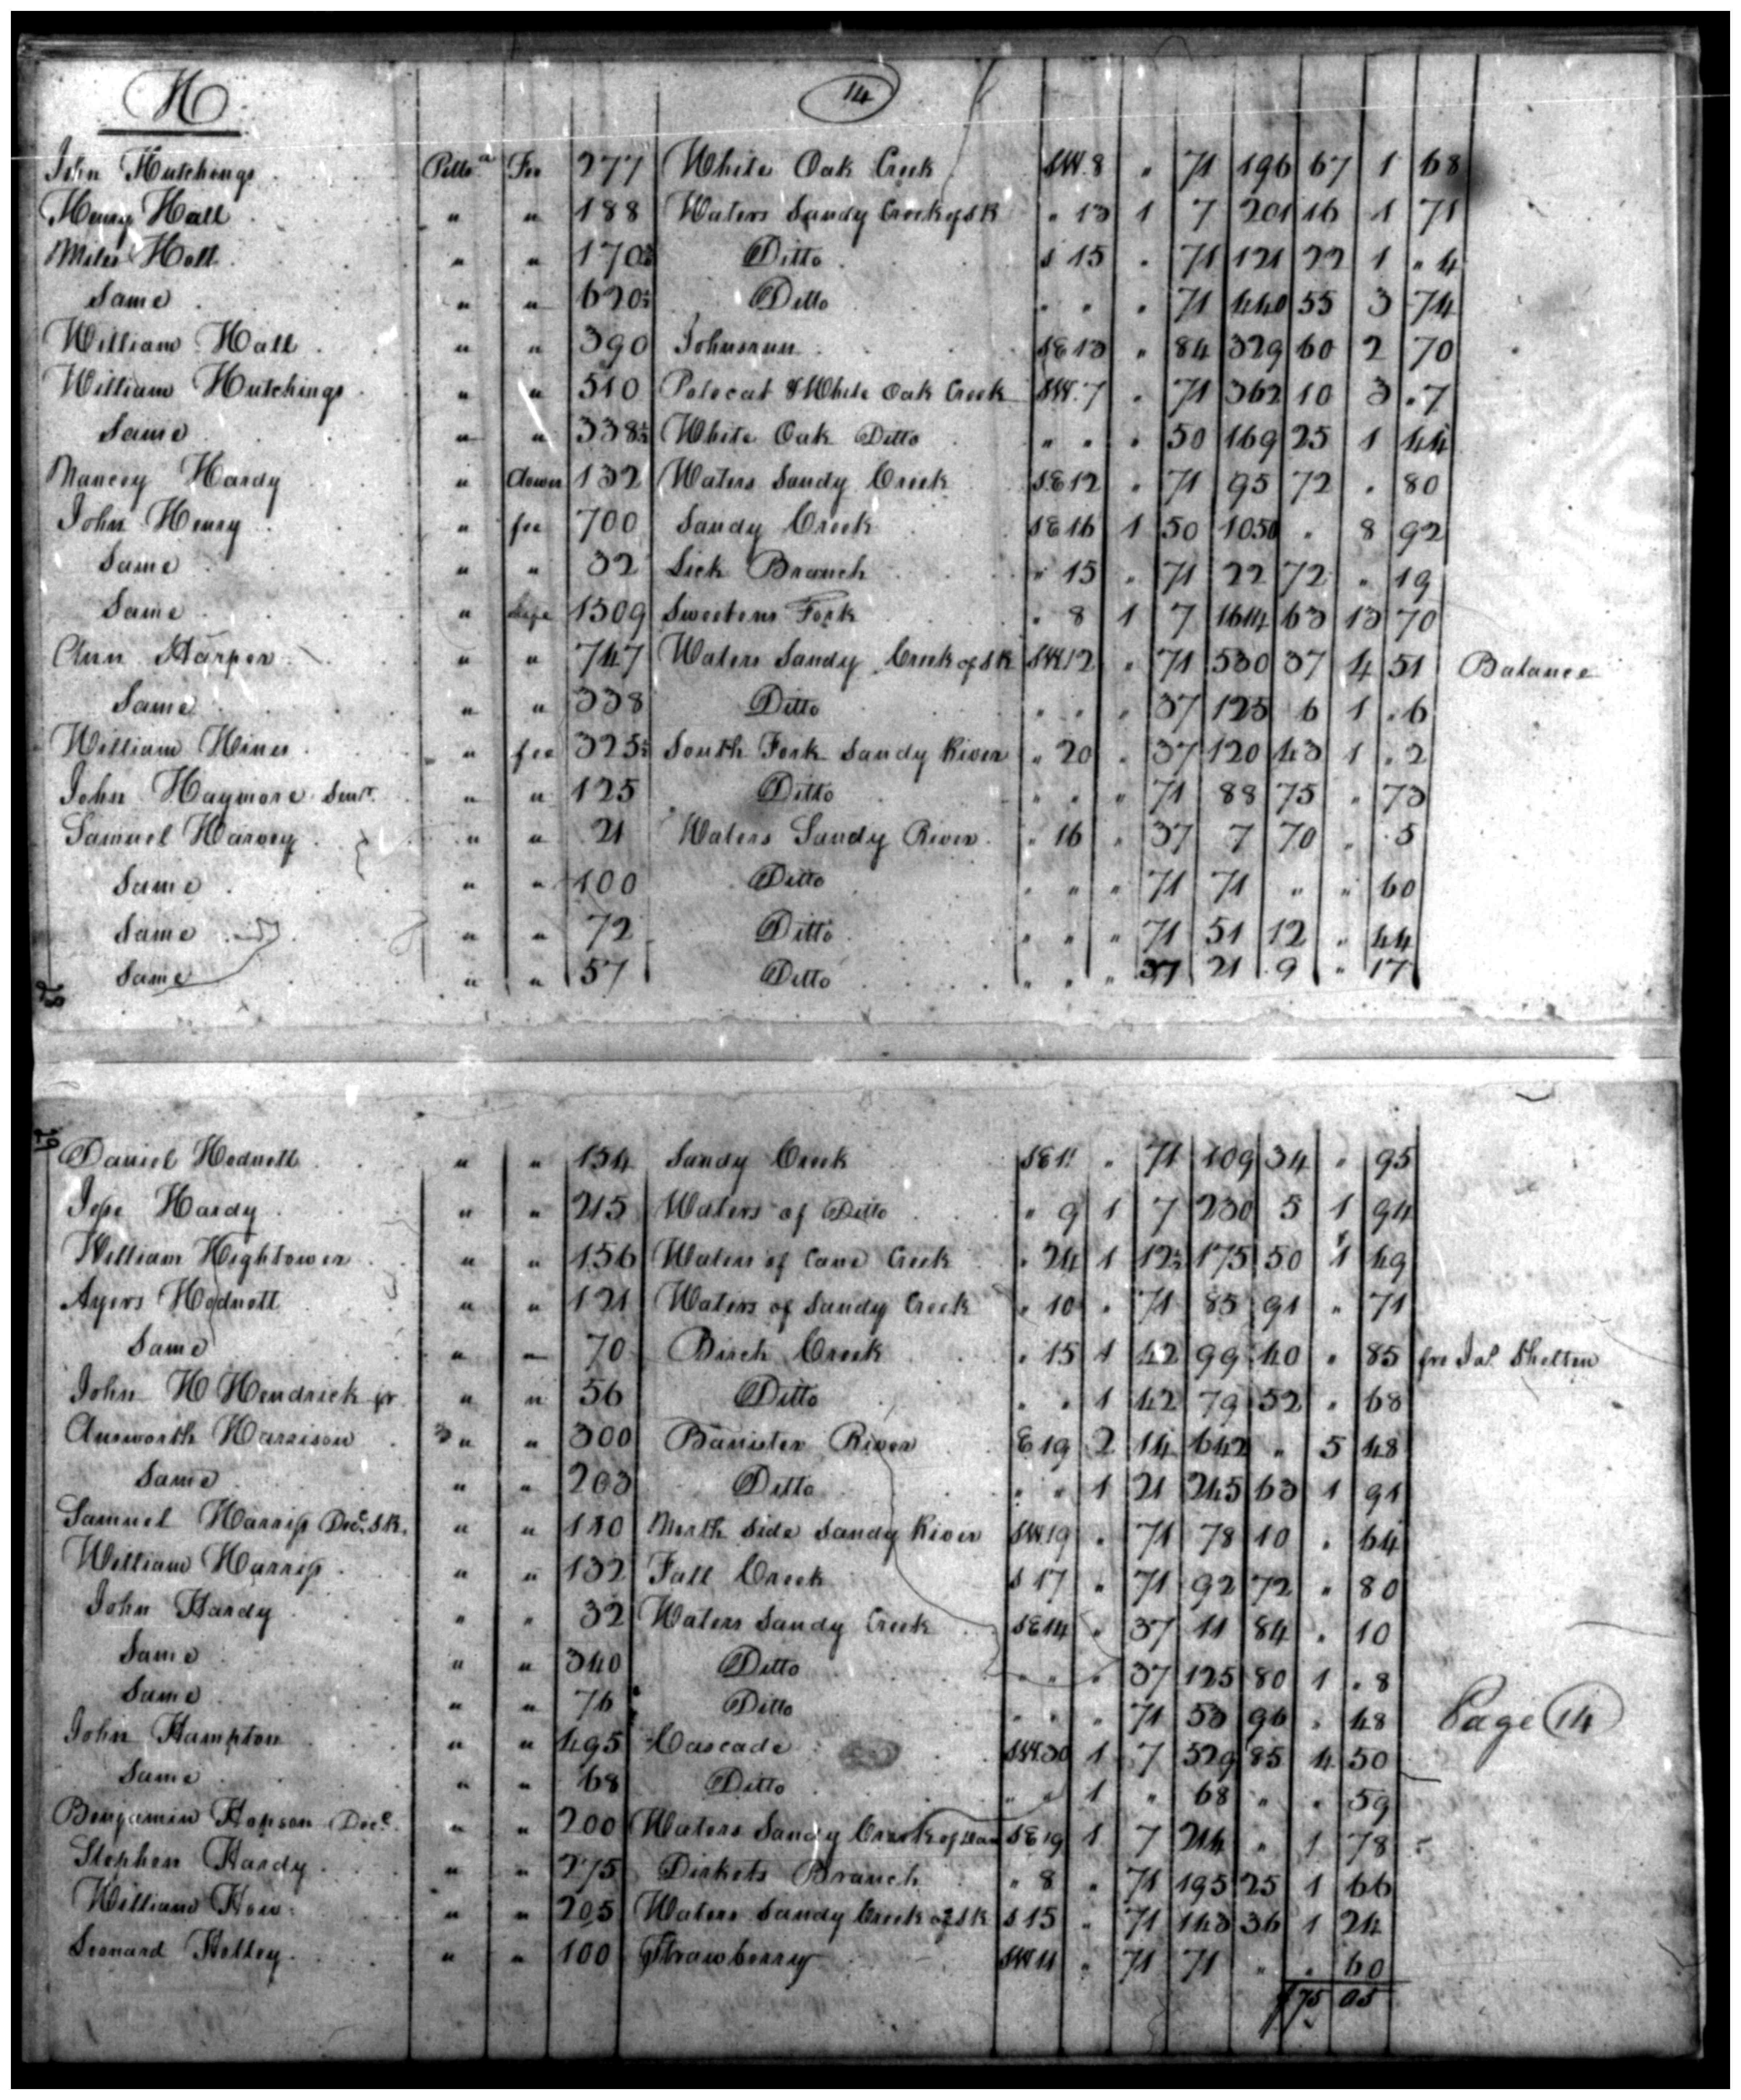 H
14
John Hutchings Pitts.a Fee 277 White Oak Creek SW. 8 " 71 196 67 1 68
Henry Hall " " 188 Waters Sandy Creek of SR " 13 1 7 201 16 1 71
Miles Hall " " 170½ Ditto S 15 " 71 121 22 1 " 4
Same " " 620½ Ditto " " " 71 440 55 3 74
William Hall " " 390 Johnsrun SE 13 " 84 329 60 2 70
William Hutchings " " 510 Polecat & White Oak Creek SW. 7 " 71 362 10 3 " 7
Same " " 338½ White Oak Ditto " " " 50 169 25 1 44
Nancy Hardy " dower 132 Waters Sandy Creek SE 12 " 71 95 72 " 80
John Henry " fee 700 Sandy Creek SE 16 1 50 1050 " 8 92
Same " " 32 Lick Branch " 15 " 71 22 72 " 19
Same " Life 1509 Sweetens Fork " 8 1 7 1614 63 13 70
Ann Harper " " 747 Waters Sandy Creek of SR SW 12 " 71 530 37 4 51 Balance
Same " " 338 Ditto " " " 37 125 6 1 " 6
William Hines " fee 325½ South Fork Sandy River " 20 " 37 120 43 1 " 2
John Haymore Senr. " " 125 Ditto " " " 71 88 75 " 73
Samuel Harvey " " 21 Waters Sandy River " 16 " 37 7 70 " 5
Same " " 100 Ditto " " " 71 71 " " 60
Same " " 72 Ditto " " " 71 51 12 " 44
Same " " 57 Ditto " " " 37 21 9 " 17
Daniel Hodnett " " 154 Sandy Creek SE 11 " 71 109 34 " 95
Jesse Hardy " " 215 Waters of Ditto " 9 1 7 230 5 1 94
William Hightower " " 156 Waters of Cane Creek " 24 1 12½ 175 50 1 49
Ayers Hodnett " " 121 Waters of Sandy Creek " 10 " 71 85 91 " 71
Same " " 70 Birch Creek " 15 1 42 99 40 " 85 fro Jas. Shelton
John H Hendrick jr " " 56 Ditto " " 1 42 79 52 " 68
Ainsworth Harrison " " 300 Banister River E 19 2 14 642 " 5 48
Same " " 203 Ditto " " 1 21 245 63 1 91
Samuel Harriss Decd. SR. " " 110 North Side Sandy River SW 19 " 71 78 10 " 64
William Harriss " " 132 Fall Creek S 17 " 71 92 72 " 80
John Hardy " " 32 Waters Sandy Creek SE 14 " 37 11 84 " 10
Same " " 340 Ditto " " " 37 125 80 1 " 8
Same " " 76 Ditto " " " 71 53 96 " 48
Page 14
John Hampton " " 495 Cascade SW 30 1 7 529 85 4 50
Same " " 68 Ditto " " 1 " 68 " " 59
Benjamin Hopson Decd. " " 200 Waters Sandy Creek of Dan SE 19 1 7 214 " 1 78
Stephen Hardy " " 275 Dirkets Branch " 8 " 71 195 25 1 66
William How " " 205 Waters Sandy Creek of SR S 15 " 71 143 36 1 24
Leonard Kelley " " 100 Strawberry SW 11 " 71 71 " " 60
75 05